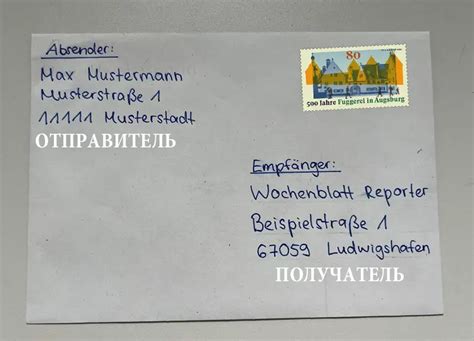 Absender:
Max Mustermann
Musterstraße 1
11111 Musterstadt
ОТПРАВИТЕЛЬ
80
500 Jahre Fuggerei in Augsburg
Empfänger:
Wochenblatt Reporter
Beispielstraße 1
67059 Ludwigshafen
ПОЛУЧАТЕЛЬ